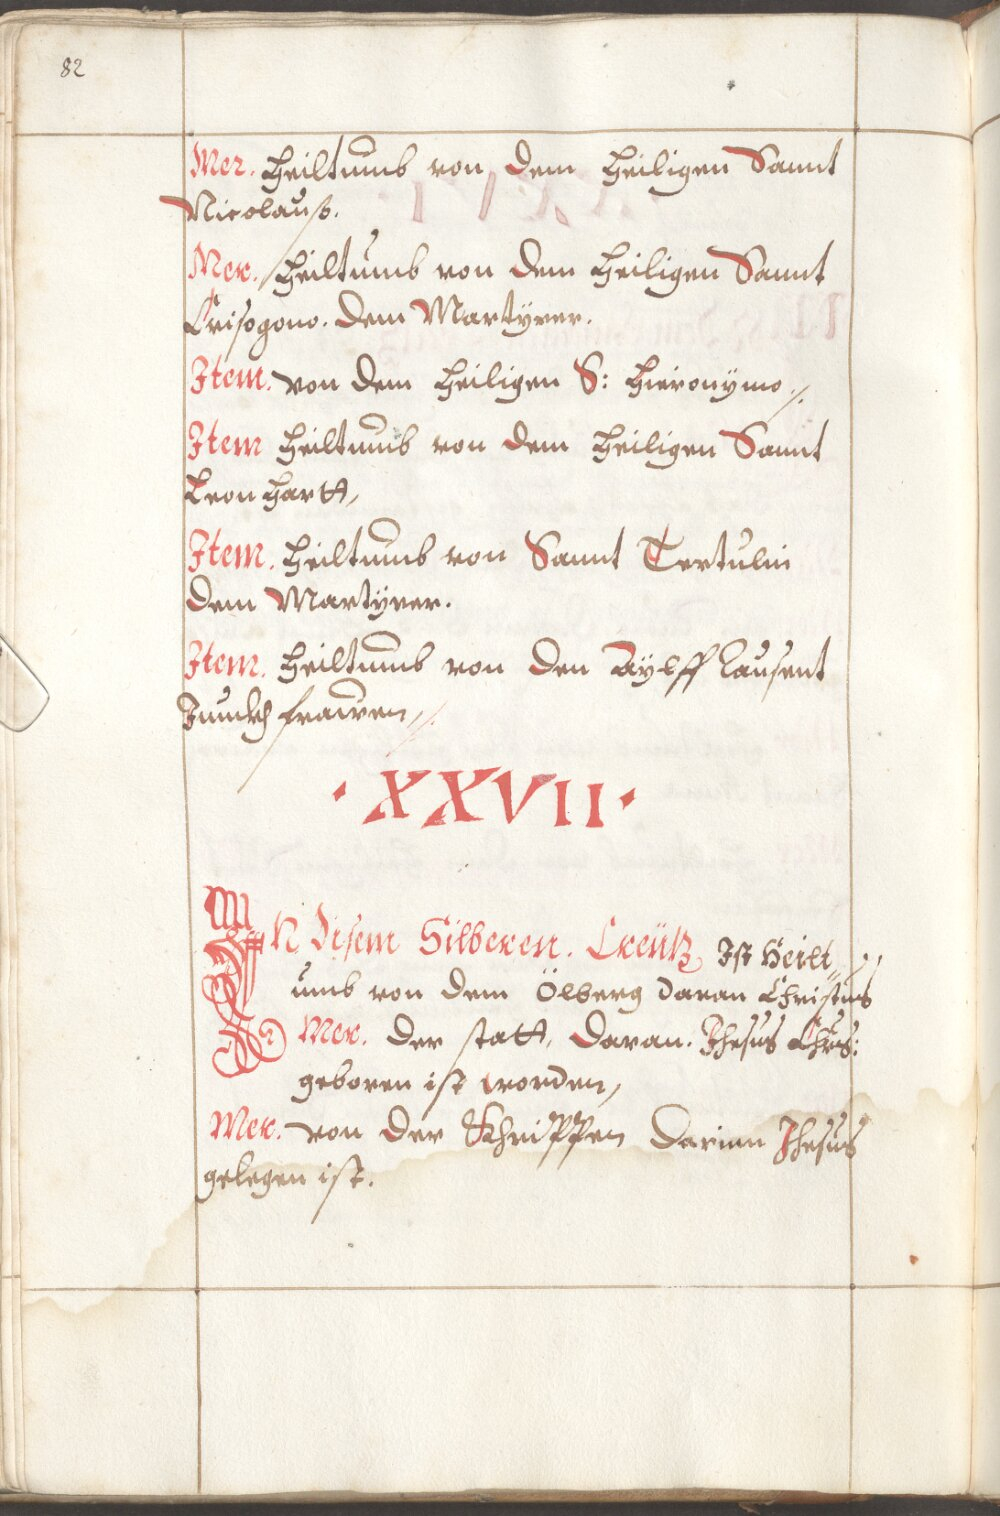 82
Mer. Heiltumb von dem Heiligen Sannt
Nicolauß.
Mer. Heiltumb von dem Heiligen Sannt
Crisogono. dem Martÿrer.
Item. von dem Heiligen S: Hieronÿmo
Item Heiltumb von dem Heiligen Sannt
Leonhartt,
Item. Heiltumb von Sannt Tertulin
dem Martÿrer.
Item. Heiltumb von den Aÿlff tausent
Junckhfrawen,
· XXVII ·
IN disem Silberen. Creütz Ist Heilt
umb von dem Ölberg Daran Christus
Mer. der statt, Daran. Jhesus Chrs:
geboren ist worden,
Mer. von der Khrippen Darinn Jhesus
gelegen ist.